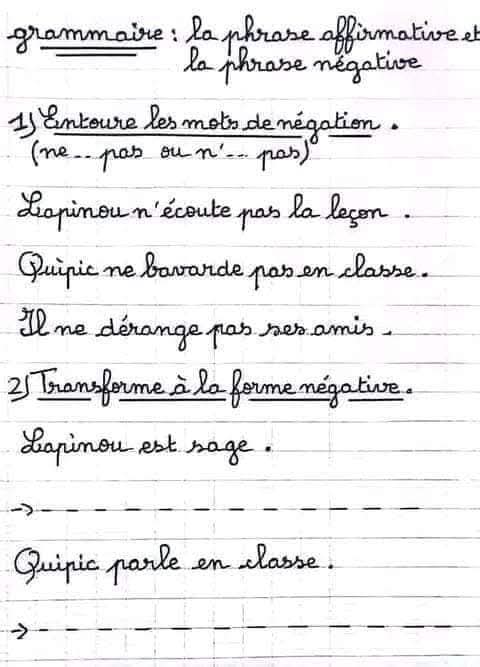 grammaire : la phrase affirmative et
la phrase négative
1) Entoure les mots de négation .
(ne ... pas ou n'... pas)
Lapinou n'écoute pas la leçon .
Quipic ne bavarde pas en classe .
Il ne dérange pas ses amis .
2) Transforme à la forme négative .
Lapinou est sage .
→ - - - - - - - - - - - - - -
Quipic parle en classe .
→ - - - - - - - - - - - - - -